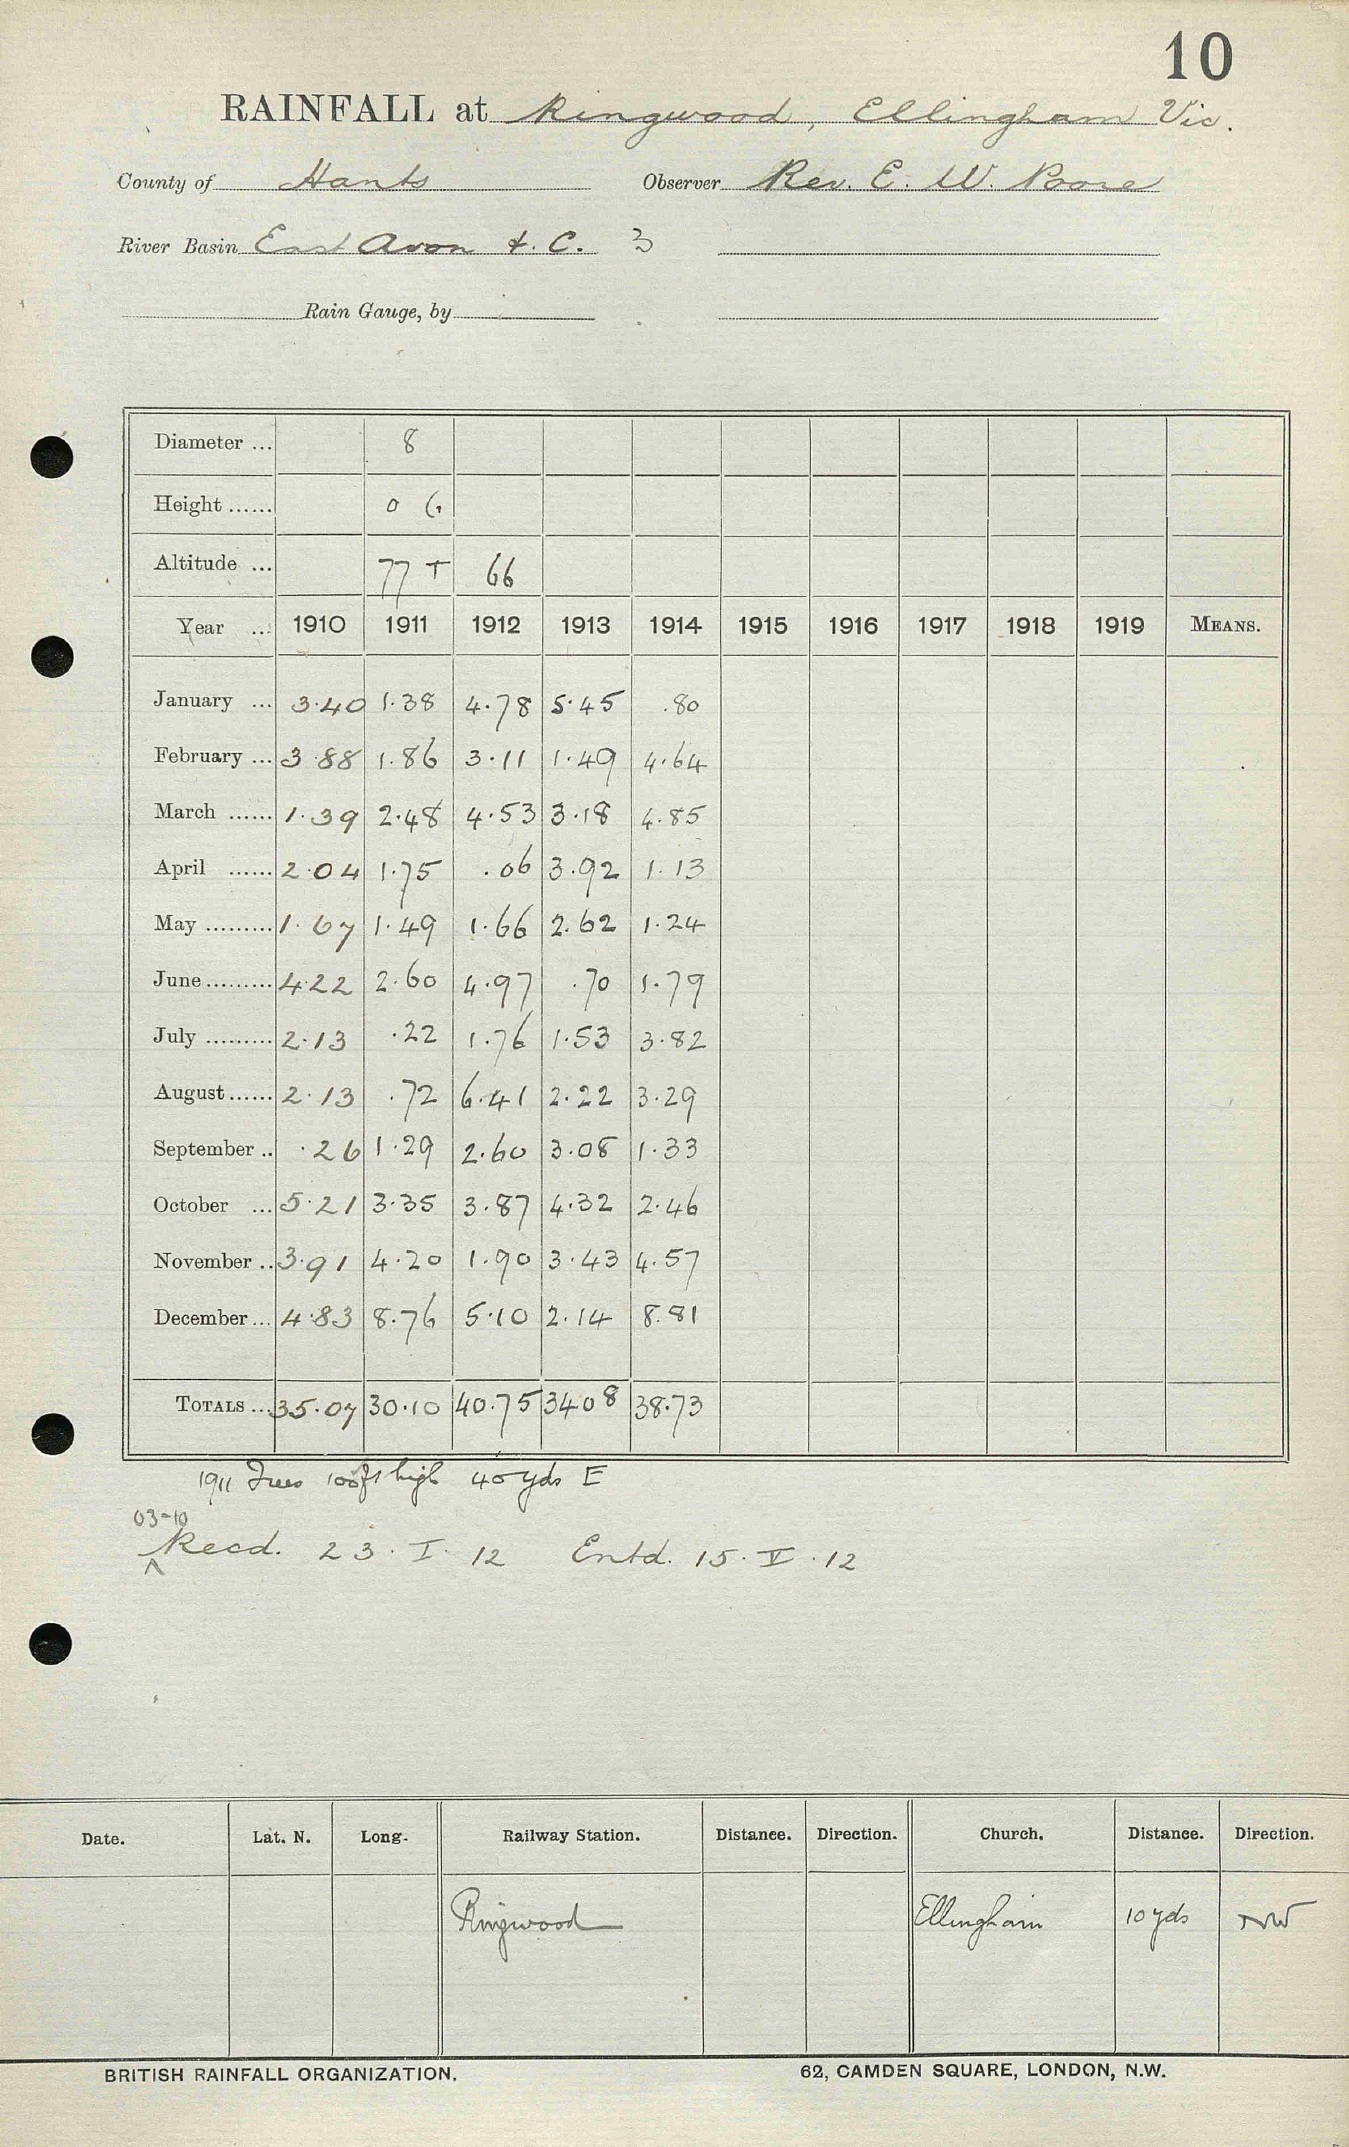 10
RAINFALL at Ringwood, Ellingham Vic.
County of Hants Observer Rev. E. W. Poore
River Basin East Avon & C. 3
Rain Gauge, by
Diameter ... 8
Height ...... 0 6
Altitude ... 77 T 66
Year ... 1910 1911 1912 1913 1914 1915 1916 1917 1918 1919 MEANS.
January ... 3.40 1.38 4.78 5.45 .80
February ... 3.88 1.86 3.11 1.49 4.64
March ...... 1.39 2.48 4.53 3.18 4.85
April ...... 2.04 1.75 .06 3.92 1.13
May ......... 1.67 1.49 1.66 2.62 1.24
June ......... 4.22 2.60 4.97 .70 1.79
July ......... 2.13 .22 1.76 1.53 3.82
August ...... 2.13 .72 6.41 2.22 3.29
September .. .26 1.29 2.60 3.08 1.33
October ... 5.21 3.35 3.87 4.32 2.46
November .. 3.91 4.20 1.90 3.43 4.57
December ... 4.83 8.76 5.10 2.14 8.81
TOTALS ... 35.07 30.10 40.75 34 08 38.73
1911 Trees 100ft high 40 yds E
03-10
Recd. 23. I. 12 Entd. 15. II. 12
Date. Lat. N. Long. Railway Station. Distance. Direction. Church. Distance. Direction.
Ringwood Ellingham 10 yds NW
BRITISH RAINFALL ORGANIZATION. 62, CAMDEN SQUARE, LONDON, N.W.